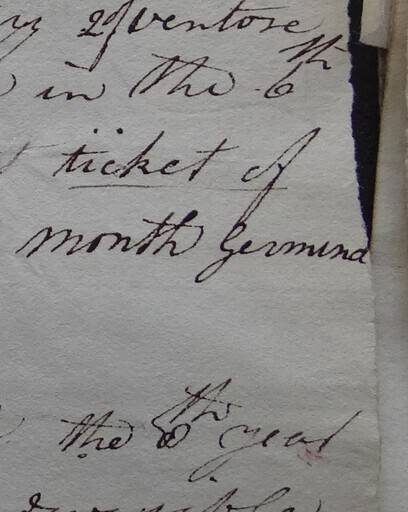 29 ventose
in the 6th
ticket of
month Germina
the 6th year